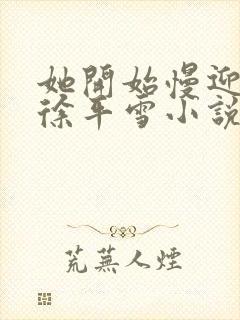 她開始慢迎
徐平雪小說
荒蕪人煙